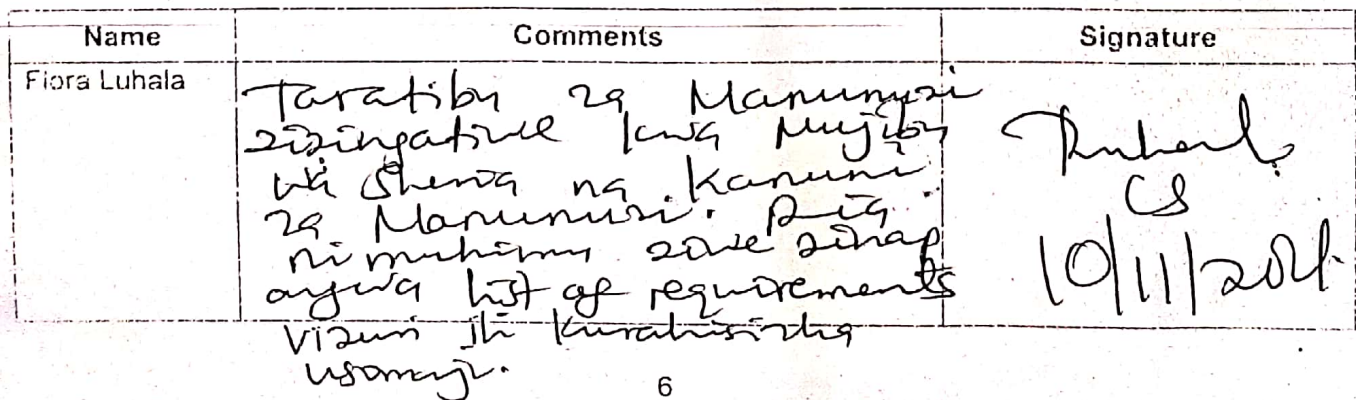 Name Comments Signature
Fiora Luhala
Taratibu za Manunuzi
zizingatiwe kwa Mujibu
wa Sheria na Kanuni
za Manunuzi. Pia
ni muhimu ziwe zinap
angwa list of requirements
vizuri ili kurahisisha
usomaji.
CS
10/11/2021
6